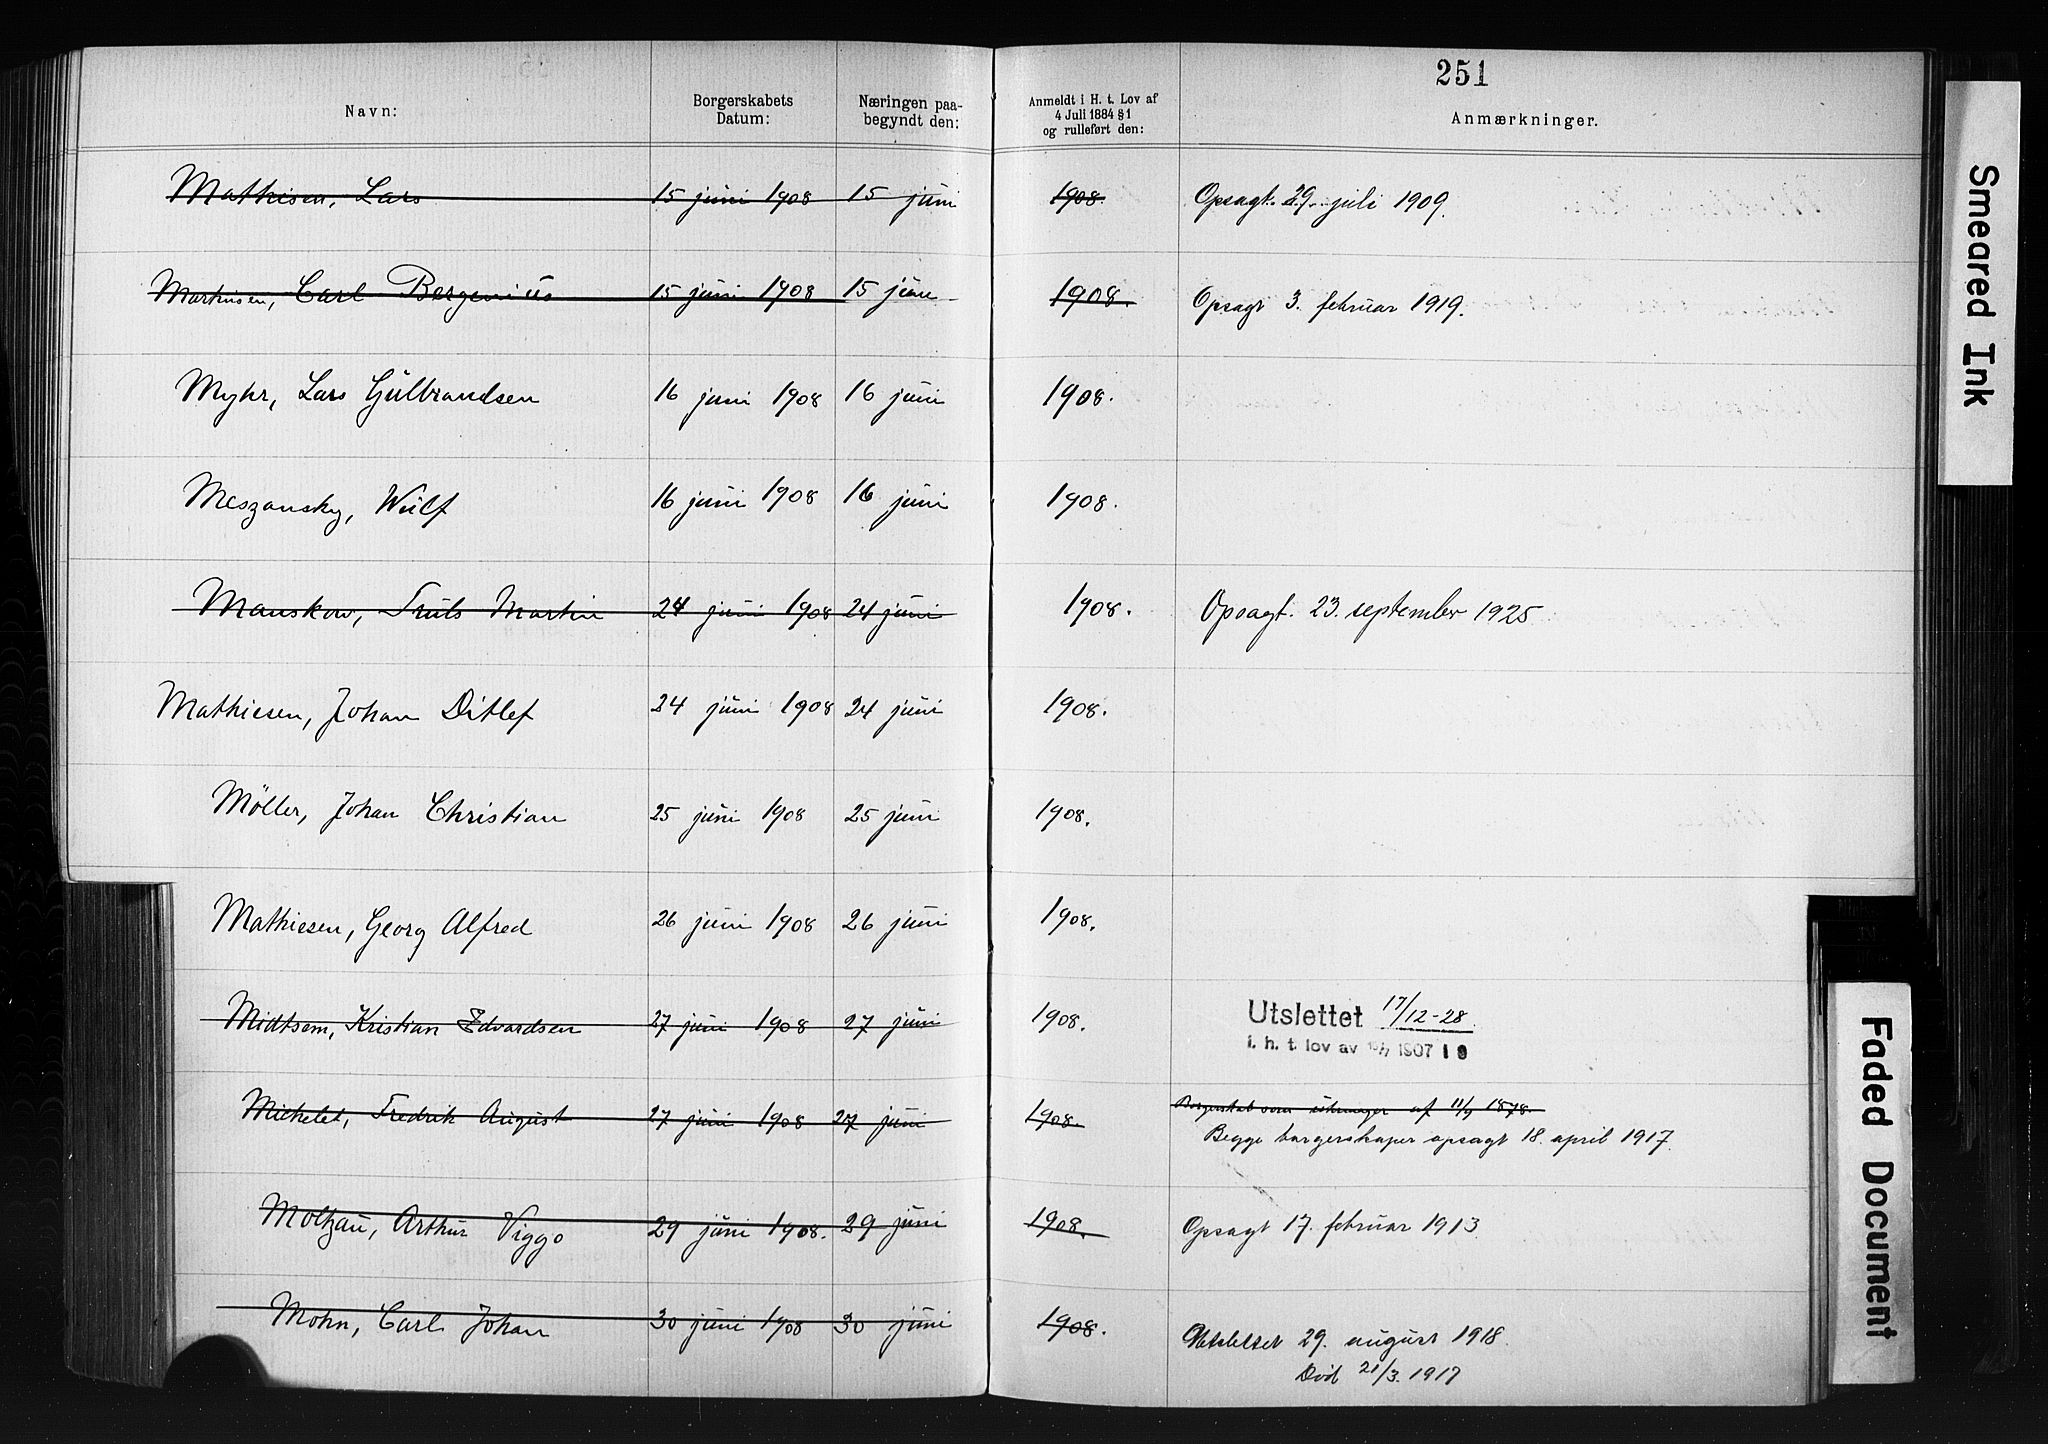 251
Navn:
Borgerskabets Datum:
Næringen paa-begyndt den:
Anmeldt i H. t. Lov af 4 Juli 1884 § 1 og rulleført den:
Anmærkninger.
Mathisen, Lars 15 juni 1908 15 juni 1908. Opsagt 29. juli 1909.
Martinsen, Carl Bergenius 15 juni 1908 15 juni 1908. Opsagt 3. februar 1919.
Myhr, Lars Gulbrandsen 16 juni 1908 16 juni 1908.
Meszansky, Wulf 16 juni 1908 16 juni 1908.
Manskow, Truls Martin 24 juni 1908 24 juni 1908. Opsagt. 23. september 1925
Mathiesen, Johan Ditlef 24 juni 1908 24 juni 1908.
Möller, Johan Christian 25 juni 1908 25 juni 1908.
Mathiesen, Georg Alfred 26 juni 1908 26 juni 1908.
Midtsem, Kristian Edvardsen 27 juni 1908 27 juni 1908. Utslettet 17/12-28.
i. h. t. lov av 1907
Borgerskab som af 11/9 1878.
Michelet, Fredrik August 27 juni 1908 27 juni 1908.
Begge borgerskaper opsagt 18. april 1917.
Moltzau, Arthur Viggo 29 juni 1908. 29 juni 1908. Opsagt 17. februar 1913
Mohn, Carl Johan 30 juni 1908 30 juni 1908. Utslettet 29. august 1918.
Död 21/3. 1917
Smeared Ink
Faded Document